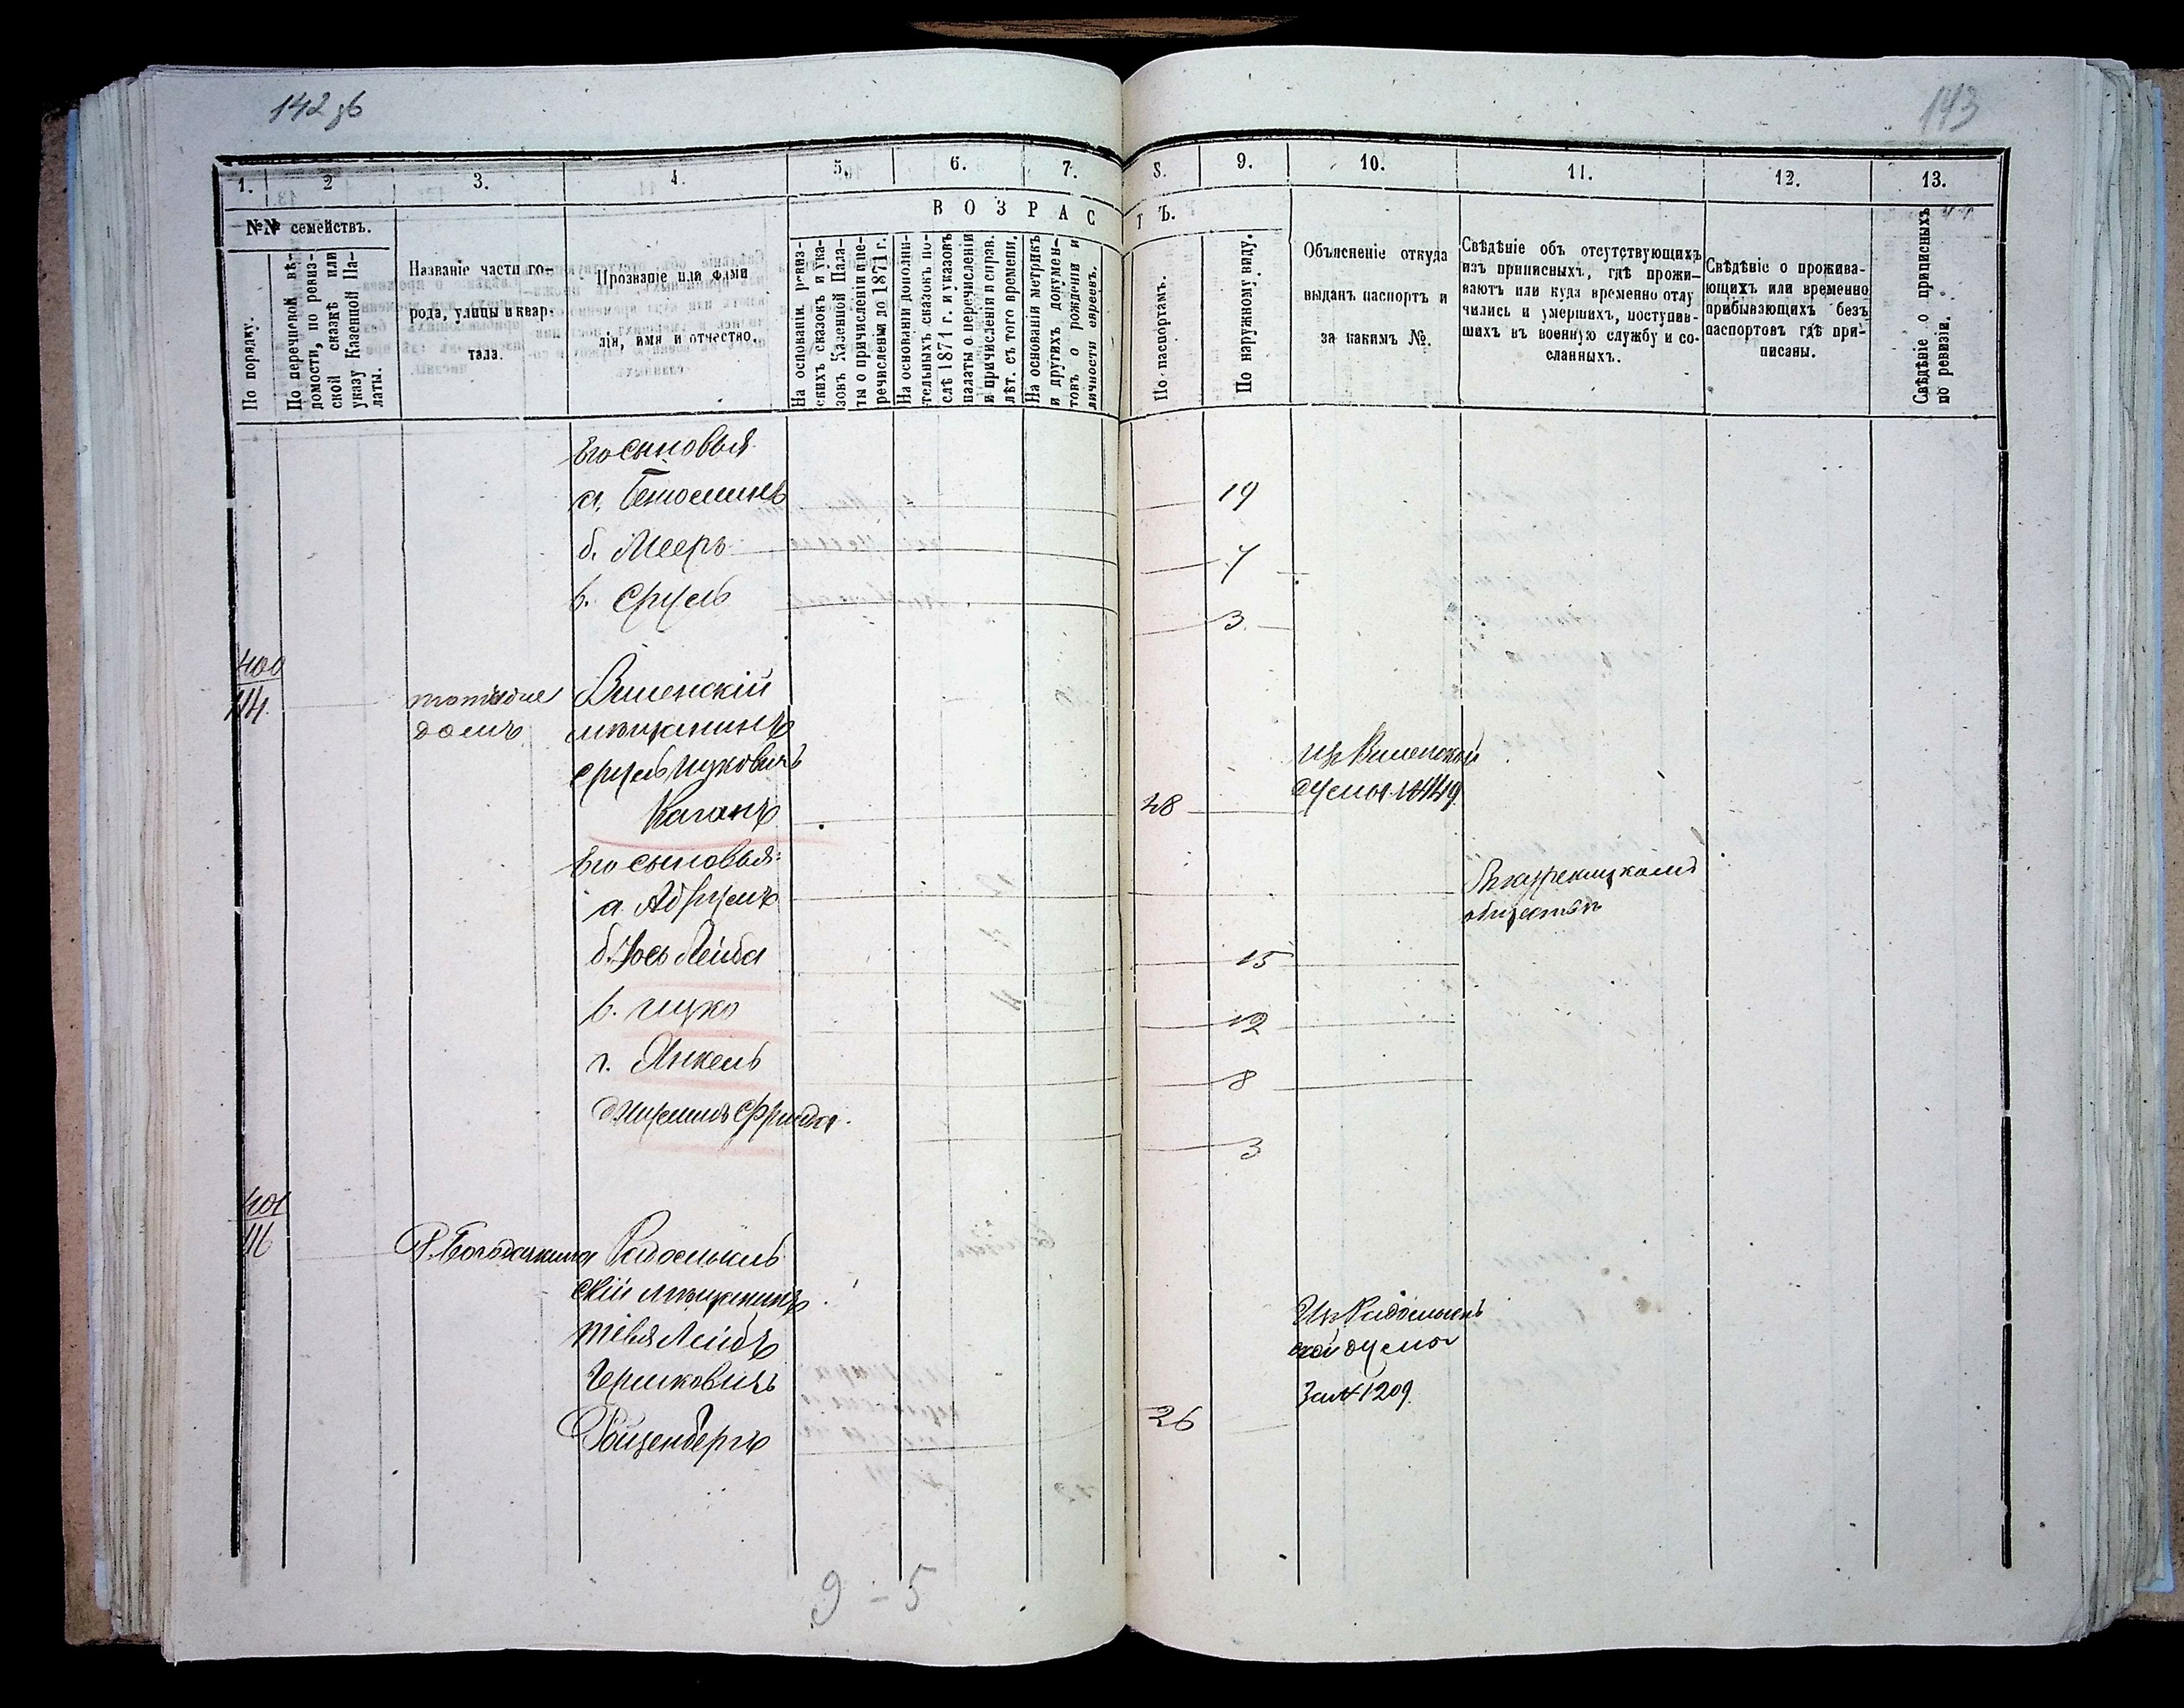 142 об
143
1.
2
3.
4.
5.
6.
7.
8.
9.
10.
11.
12.
13.
№№ семействъ.
По порядку.
По перечневой вѣ-
домости, по ревиз-
ской сказкѣ или
указу Казенной Па-
латы.
Названіе части го-
рода, улицы и квар-
тала.
Прозваніе или фами
лія, имя и отчество.
ВОЗРАС
ТЪ.
На основаніи ревиз-
скихъ сказокъ и ука-
зовъ Казенной Пала-
ты о причисленіи и пе-
речисленіи до 1871 г.
На основаніи дополни-
тельныхъ сказокъ по-
слѣ 1871 г. и указовъ
палаты о перечисленіи
и причисленіи и справ.
лѣт. съ того времени.
На основаніи метрикъ
и другихъ докумен-
товъ о рожденіи и
личности евреевъ.
По паспортамъ.
По наружному виду.
Объясненіе откуда
выданъ паспортъ и
за какимъ №.
Свѣдѣніе объ отсутствующихъ
изъ приписныхъ, гдѣ прожи-
ваютъ или куда временно отлу
чились и умершихъ, поступив-
шихъ въ военную службу и со-
сланныхъ.
Свѣдѣніе о прожива-
ющихъ или временно
прибывающихъ безъ
паспортовъ гдѣ при-
писаны.
Свѣдѣніе о приписныхъ
по ревизіи.
Его сыновья
а, Беньоминъ 19
б. Мееръ 7
в. Сруль 3
400
114.
тотъже
домъ
Виленскій
мѣщанинъ
Сруль Ицковичъ
Каганъ 48
Из Виленской
думы № 1449
Его сыновья:
а. Абрумъ
общества
б. Іось Лейба 15
в. Ицко 12
г. Янкель 8
3
401
116
Радомысль
скій мѣщанинъ
Тевя Лейбъ
Берковичъ
Ройзенбергъ 26
Из Радомысль
ской думы
За № 1209
9 - 5